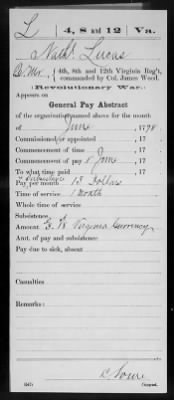 L | 4, 8 and 12 | Va.
Nathl Lucas
4th, 8th and 12th Virginia Reg't,
commanded by Col. James Wood.
(Revolutionary War.)
Appears on
General Pay Abstract
of the organization named above for the month
of June, 1778
Commissioned or appointed , 17
Commencement of time , 17
Commencement of pay June , 17
To what time paid , 17
Pay per month 13 Dollars
Time of service 1 Month
Whole time of service
Subsistence
Amount, Virginia Currency
Amt. of pay and subsistence:
Pay due to sick, absent
Casualties
Remarks:
Copyist.